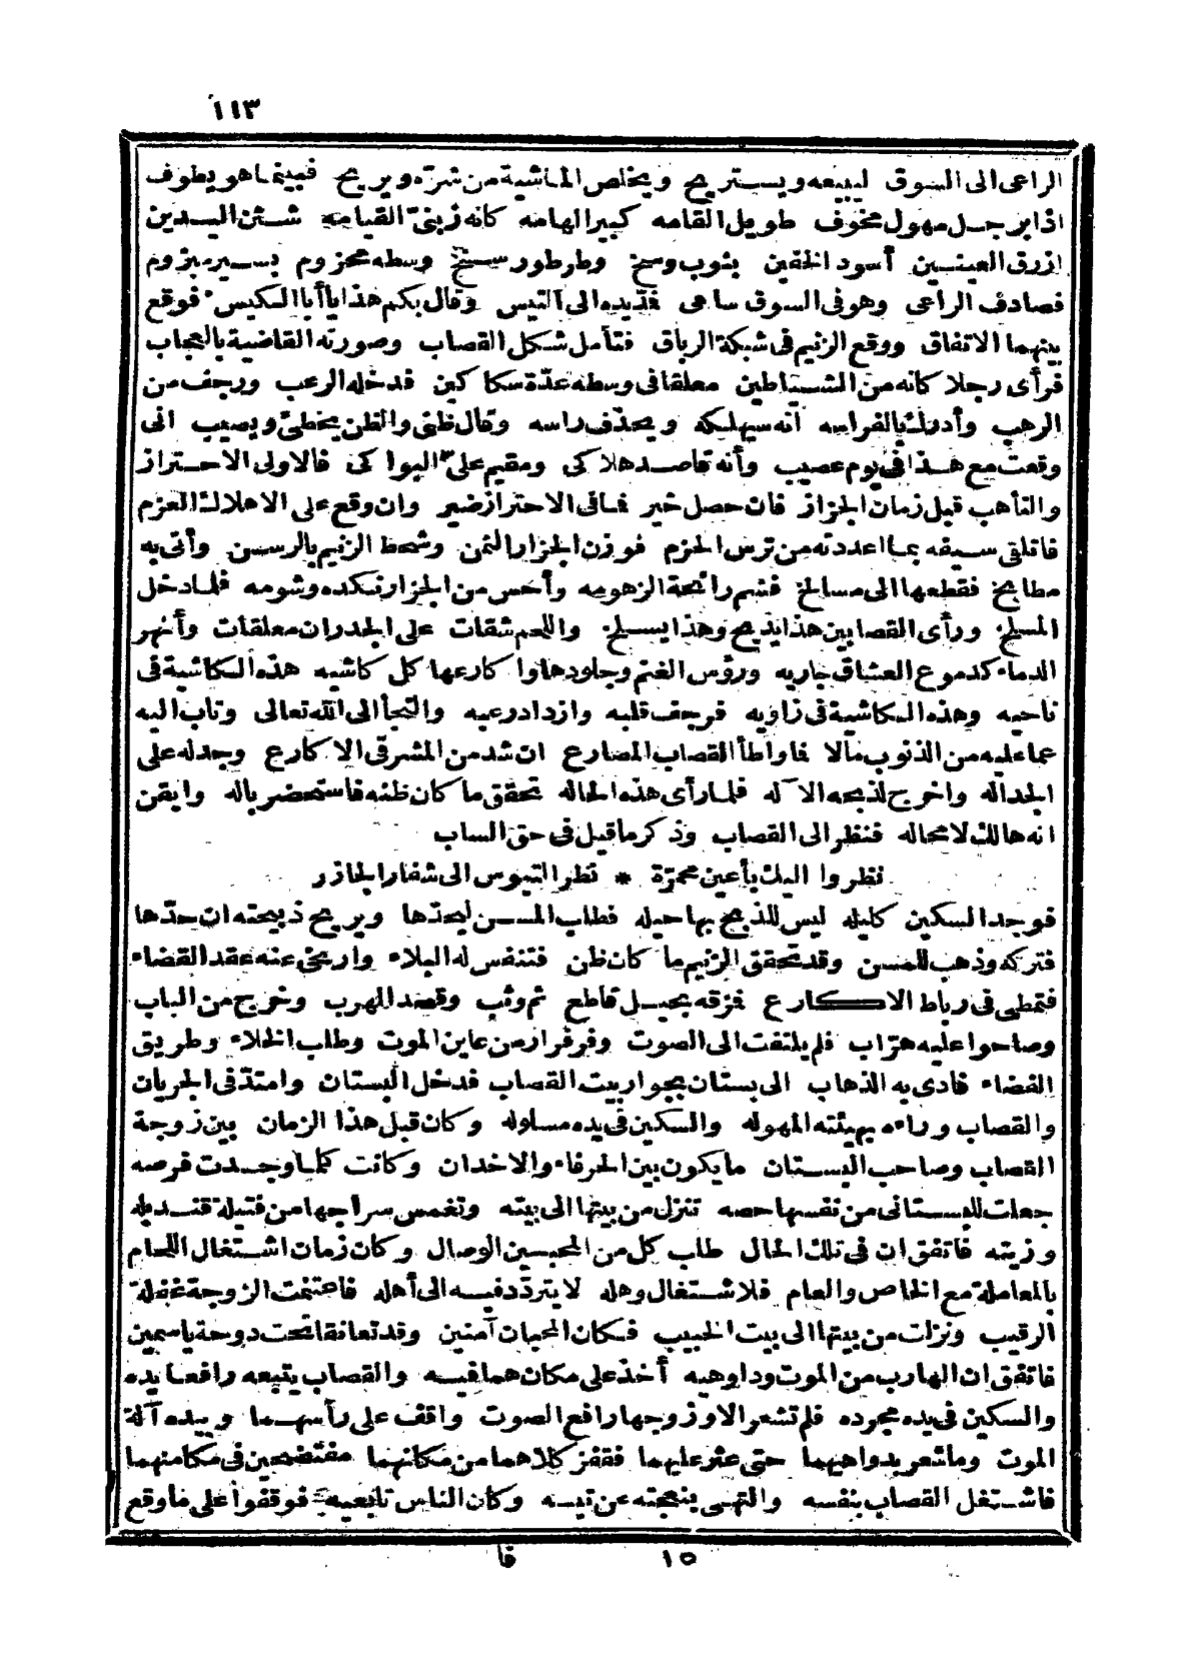 ١١٣
الراعى الى السوق ليبيعه ويستريح ويخلص الماشية من شره ويريح فبينما هو يطوف
اذا برجل مهول مخوف طويل القامه كبير الهامه كانه زبنى القيامه شثن اليدين
ازرق العينين أسود الخفين بثوب وسخ وطرطور سنخ وسطه محزوم بسير مبزوم
فصادف الراعى وهو فى السوق ساعى فمد يده الى التيس وقال بكم هذا يا أبا الكيس فوقع
بينهما الاتفاق ووقع الزنيم فى شبكة الرباق فتأمل شكل القصاب وصورته القاضية بالعجاب
فرأى رجلا كانه من الشياطين معلقا فى وسطه عدّة سكاكين فدخله الرعب ورجف من
الرهب وأدرك بالفراسه أنه سيهلكه ويحذف راسه وقال ظنى والظن يخطئ ويصيب انى
وقعت مع هذا فى يوم عصيب وأنه قاصد هلاكى ومقيم علىّ البواكى فالاولى الاحتراز
والتأهب قبل زمان الجزاز فان حصل خير فما فى الاحتراز ضير وان وقع على الاهلاك العزم
فاتلقى سيفه بما اعددته من ترس الحزم فوزن الجزار الثمن وشحط الزنيم بالرسن وأتى به
مطابخ فقطعها الى مسالخ فشم رائحة الزهومه وأحس من الجزار نكده وشومه فلما دخل
المسلخ ورأى القصابين هذا يذبح وهذا يسلخ واللحم شقات على الجدران معلقات وأنهر
الدماء كدموع العشاق جاريه ورؤس الغنم وجلودها وا كارعها كل كاشيه هذه الكاشية فى
ناحيه وهذه الكاشية فى زاويه فرجف قلبه وازداد رعبه والتجأ الى الله تعالى وتاب اليه
عما عليه من الذنوب مآلا فما واطأ القصاب المصارع ان شد من المشرقى الاكارع وجدله على
الجداله واخرج لذبحه الآله فلما رأى هذه الحاله تحقق ما كان ظنه فاستحضر باله وايقن
انه هالك لا محاله فنظر الى القصاب وذكر ما قيل فى حق الساب
نظروا اليك بأعين محمرّة * نظر التيوس الى شفار الجازر
فوجد السكين كليله ليس للذبح بها حيله فطلب المسن ليحدّها ويريح ذبيحته ان حدّها
فتركه وذهب للمسن وقد تحقق الزنيم ما كان ظن فتنفس له البلاء وارتخى عنه عقد القضاء
فتمطى فى رباط الاكارع فمزقه بحبل قاطع ثم وثب وقصد الهرب وخرج من الباب
وصاحوا عليه هرّاب فلم يلتفت الى الصوت وفر فرار من عاين الموت وطلب الخلاء وطريق
الفضاء فادى به الذهاب الى بستان بجوار بيت القصاب فدخل البستان وامتدّ فى الجريان
والقصاب وراءه بهيئته المهوله والسكين فى يده مسلوله وكان قبل هذا الزمان بين زوجة
القصاب وصاحب البستان ما يكون بين الحرفاء والاخدان وكانت كلما وجدت فرصه
جعلت للبستانى من نفسها حصه تنزل من بيتها الى بيته وتغمس سراجها من فتيلة قنديله
وزيته فاتفق ان فى تلك الحال طلب كل من المحبسين الوصال وكان زمان اشتغال اللحام
بالمعاملة مع الخاص والعام فلاشتغال وهله لا يتردّد فيه الى أهله فاغتنمت الزوجة غفلة
الرقيب ونزلت من بيتها الى بيت الحبيب فكان المحبان آمنين وقد تعانقا تحت دوحة ياسمين
فاتفق ان الهارب من الموت ودواهيه أخذ على مكان هما فيه والقصاب يتبعه رافعا يده
والسكين فى يده مجرده فلم تشعر الا وزوجها رافع الصوت واقف على رأسهما وبيده آلة
الموت وما شعر بدواهيهما حتى عثر عليهما فقفز كلاهما من مكانهما مفتضحين فى مكامنهما
فاشتغل القصاب بنفسه والتهى بنعجته عن تيسه وكان الناس تابعيه فوقفوا على ما وقع
١٥ فا